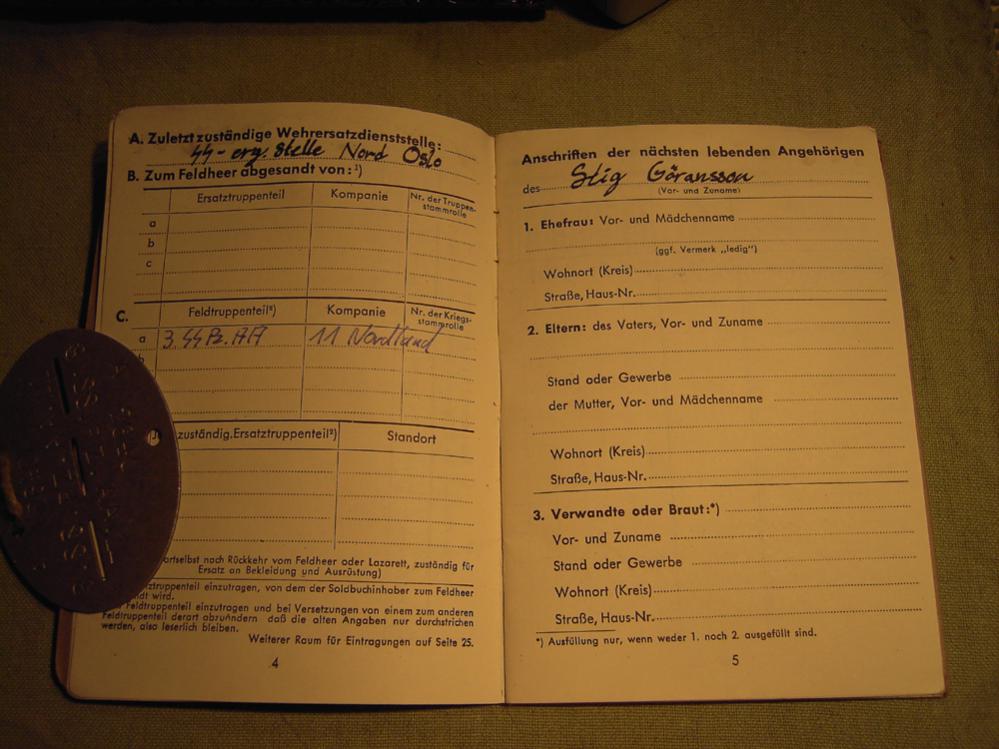 A. Zuletzt zuständige Wehrersatzdienststelle:
SS-erg. Stelle Nord Oslo
B. Zum Feldheer abgesandt von:¹)
Ersatztruppenteil Kompanie Nr. der Truppen-
stammrolle
a
b
c
C. Feldtruppenteil²) Kompanie Nr. der Kriegs-
stammrolle
a 3. SS Pz. AA 11 Nordland
b
zuständig. Ersatztruppenteil²) Standort
rtselbst nach Rückkehr vom Feldheer oder Lazarett, zuständig für
Ersatz an Bekleidung und Ausrüstung)
truppenteil einzutragen, von dem der Soldbuchinhaber zum Feldheer
dt wird.
Feldtruppenteil einzutragen und bei Versetzungen von einem zum anderen
Feldtruppenteil derart abzuändern daß die alten Angaben nur durchstrichen
werden, also leserlich bleiben.
Weiterer Raum für Eintragungen auf Seite 25.
4
Anschriften der nächsten lebenden Angehörigen
des Stig Göransson
(Vor- und Zuname)
1. Ehefrau: Vor- und Mädchenname
(ggf. Vermerk „ledig")
Wohnort (Kreis)
Straße, Haus-Nr.
2. Eltern: des Vaters, Vor- und Zuname
Stand oder Gewerbe
der Mutter, Vor- und Mädchenname
Wohnort (Kreis)
Straße, Haus-Nr.
3. Verwandte oder Braut:*)
Vor- und Zuname
Stand oder Gewerbe
Wohnort (Kreis)
Straße, Haus-Nr.
*) Ausfüllung nur, wenn weder 1. noch 2. ausgefüllt sind.
5